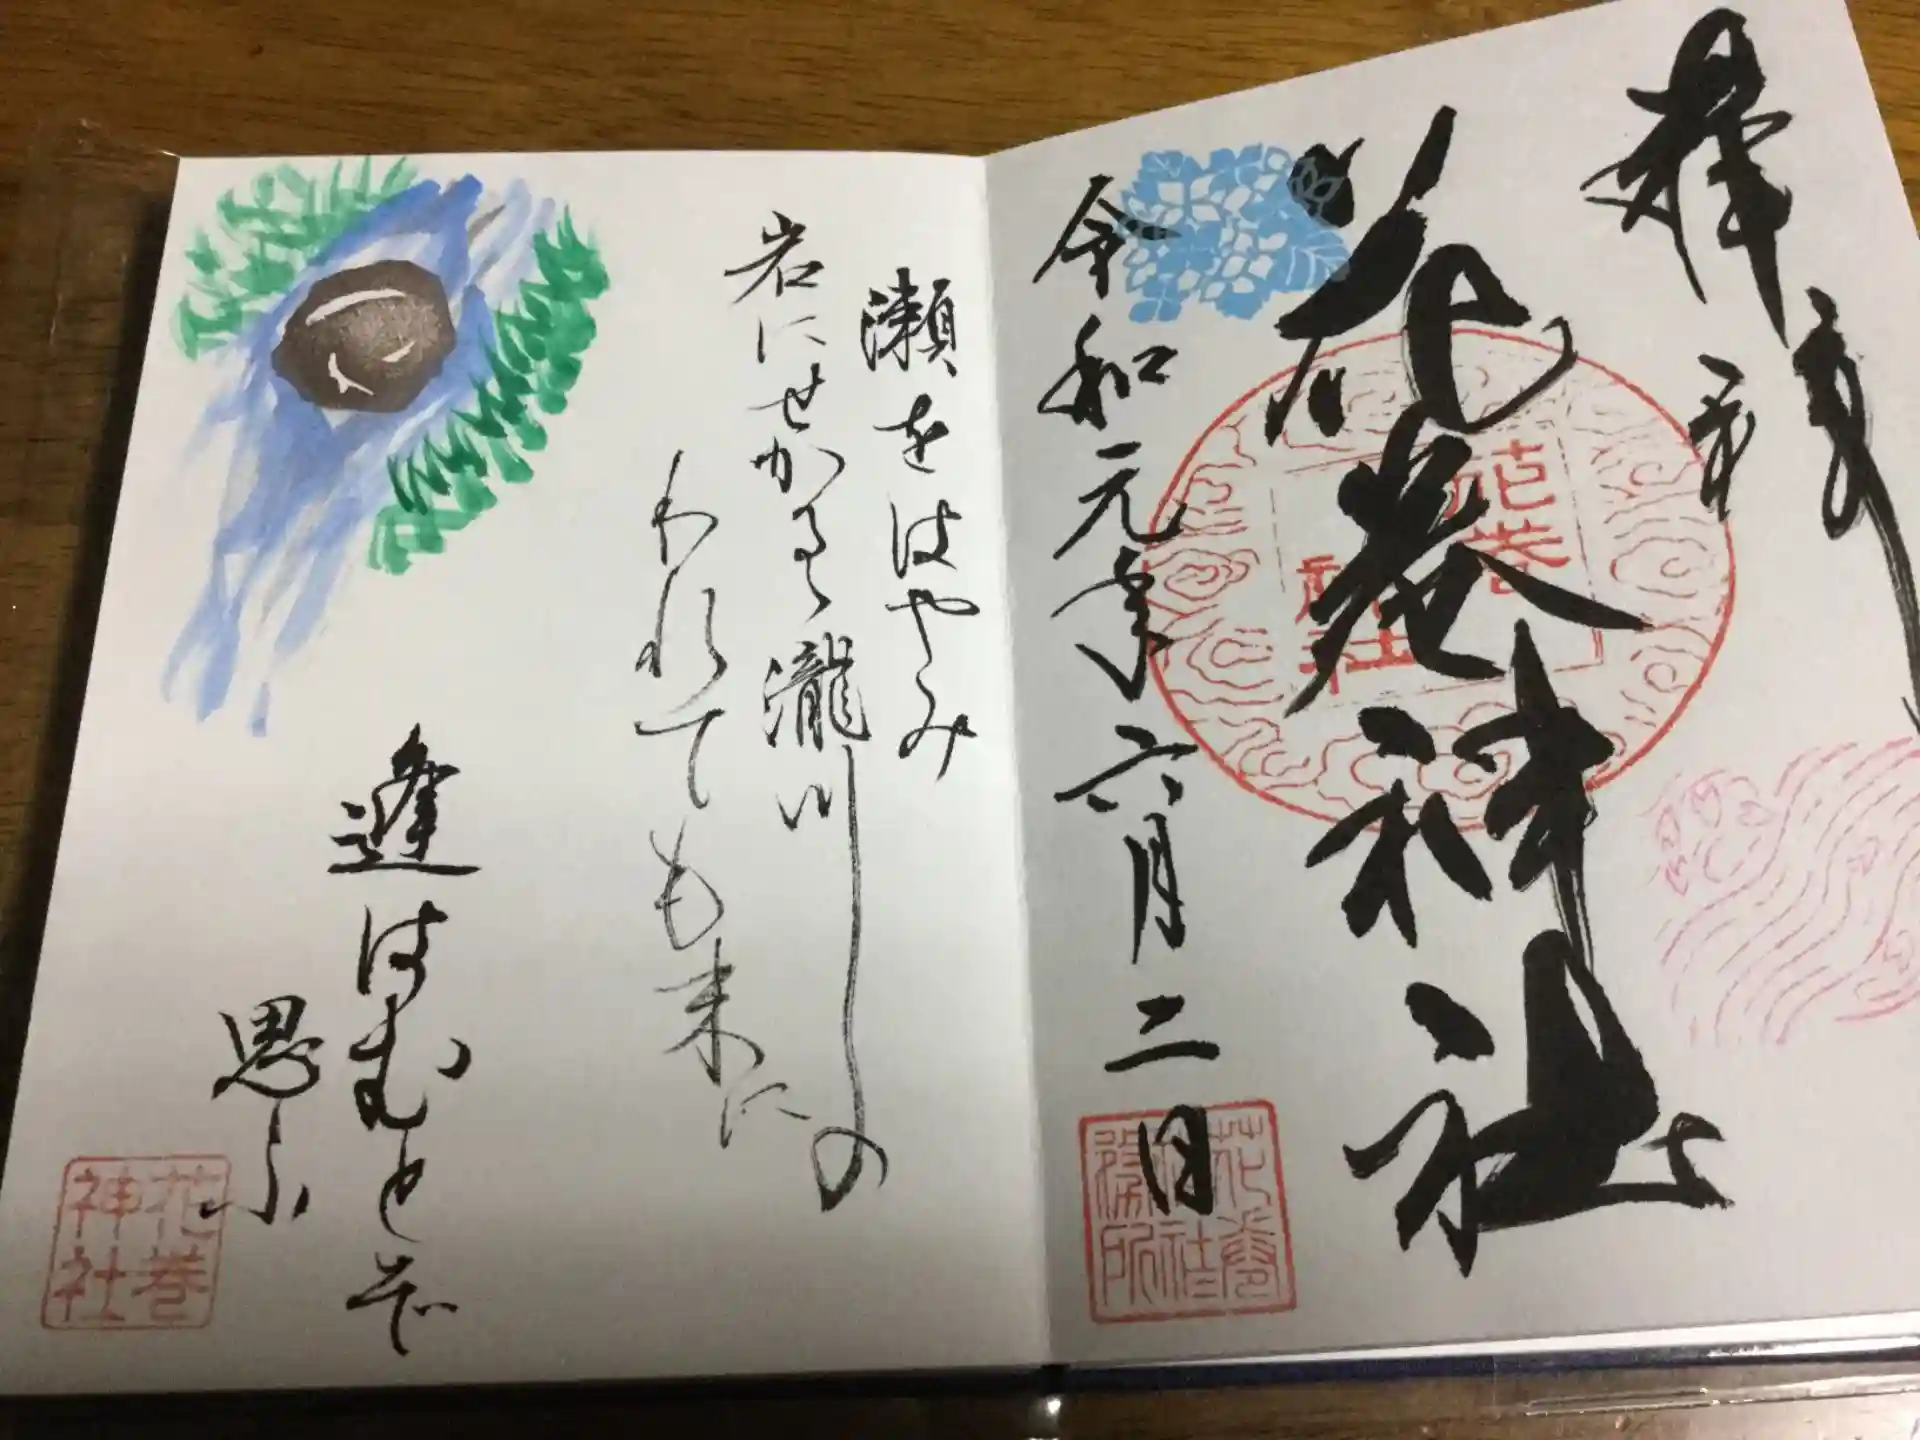 奉拝
花巻神社
令和元年六月二日
花巻
神社
花巻
神社
務所
瀬をはやみ
岩にせかるる瀧川の
われても末に
逢はむとぞ
思ふ
花巻
神社